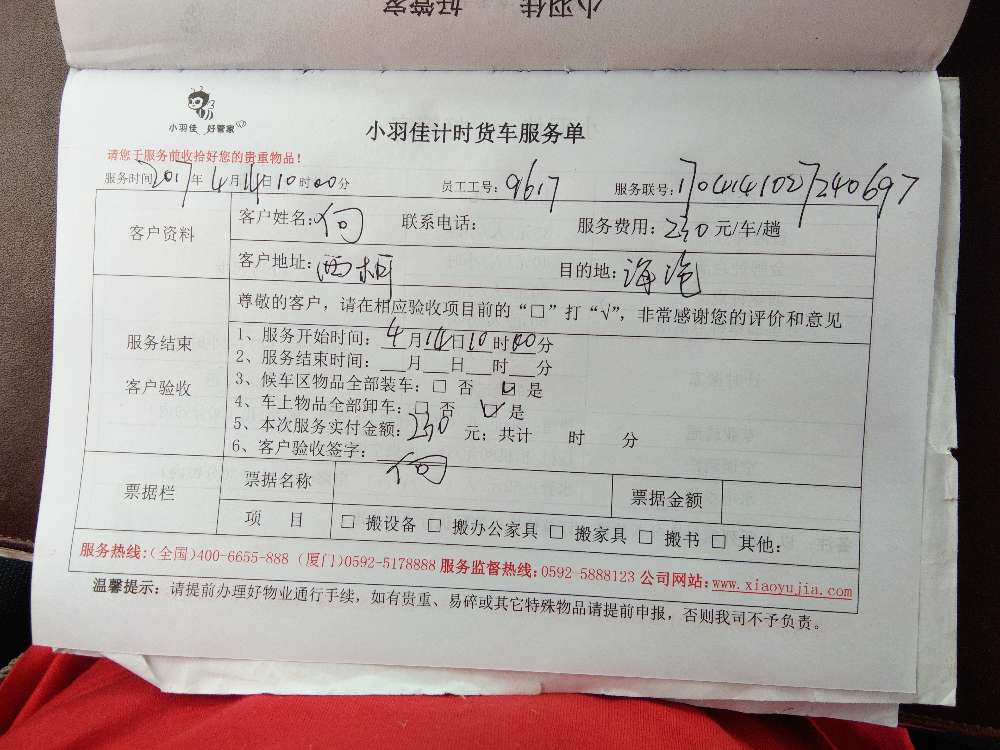 小羽佳 好管家
小羽佳 好管家
小羽佳计时货车服务单
请您于服务前收拾好您的贵重物品！
服务时间2017年4月14日10时00分 员工工号：9617 服务联号：
客户资料
客户姓名：何 联系电话： 服务费用：230元/车/趟
客户地址：西柯 目的地：海沧
服务结束
客户验收
尊敬的客户，请在相应验收项目前的“□”打“√”，非常感谢您的评价和意见
1、服务开始时间：4月14日10时00分
2、服务结束时间：___月___日___时___分
3、候车区物品全部装车：□ 否 ☑ 是
4、车上物品全部卸车：□ 否 ☑ 是
5、本次服务实付金额：230元；共计 时 分
6、客户验收签字：何
票据栏
票据名称 票据金额
项 目 □ 搬设备 □ 搬办公家具 □ 搬家具 □ 搬书 □ 其他：
服务热线：（全国）400-6655-888 （厦门）0592-5178888 服务监督热线：0592-5888123 公司网站：www.xiaoyujia.com
温馨提示：请提前办理好物业通行手续，如有贵重、易碎或其它特殊物品请提前申报，否则我司不予负责。